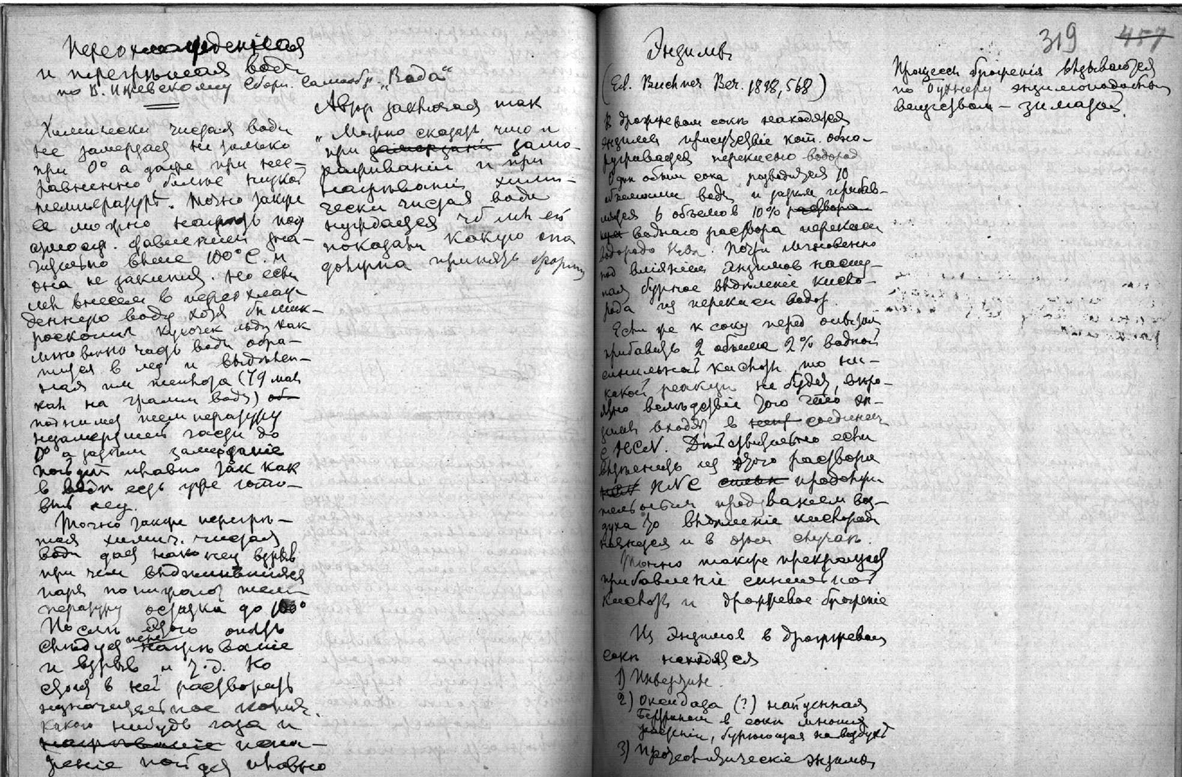 Переохлажденная
и перегрѣтая вода
по В. Сборн. "Вода"
Химически чистая вода
не замерзает не только
при 0° а даже при нес-
равненно более низкой
температурѣ. Точно также
ее можно нагрѣть под
атмосф. давлением зна-
чительно выше 100°C. и
она не закипит. Но если
мы внесем в переохлаж-
денную воду хотя бы мик-
роскопич. кусочек льду как
мгновенно часть воды обра-
тится в лед и выдѣлен-
ная им теплота (79 мал.
кал. на грамм воды) об
поднимет температуру
незамерзшей части до
0° а затѣм замерзание
пойдет плавно так как
в водѣ есть уже гото-
вый лед.
Точно также перегрѣ-
тая химич. чистая
вода дает наконец взрыв
при чем выдѣлившийся
пары понизят тем-
пературу остатка до 100°
Послѣ этого опять
слѣдует перенагрѣвание
и взрыв и т.д. Но
стоит в ней растворить
незначительное колич.
какого нибудь газа и
нагрѣвание кипе-
дение пойдет плавно
Автор заключает так
"Можно сказать что и
при замерзании замо-
раживании и при
нагрѣвании, хими-
чески чистая вода
нуждается чтобы ей
показали какую она
должна принять форму
319 457
Энзимы
(Ed. Buchner Ber. 1898, 568)
В дрожжевом сокѣ находятся
энзимы присутствие кот. обна-
руживается перекисью водорода
один объем сока разводится 10
объемами воды и затѣм прибав-
ляется 6 объемов 10% раствора
водного раствора перекиси
водорода. Почти мгновенно
под влиянием энзимов насту-
пает бурное выдѣление кисло-
рода из перекиси водор.
Если же к соку перед опытом
прибавить 2 объема 2% водной
синильной кислоты то ни-
какой реакции не будет, вѣро-
ятно вслѣдствие того что эн-
зимы входят в соединен.
с HCN. Дѣйствительно если
вытѣснить из этого раствора
HNC продолжи-
тельным продуванием воз-
духа то выдѣление кислорода
начнется и в этом случаѣ.
Точно также прекращается
прибавлением синильной
кислоты и дрожжевое брожение
Из энзимов в дрожжевом
сокѣ находятся
1) Инвертин.
2) Оксидаза (?) найденная
Бертраном в соки многих
растений, буреющая на воздухѣ
3) Протеолитические энзимы
Процессы брожения вызываются
по Бухнеру энзимоподобным
веществом – зимазой